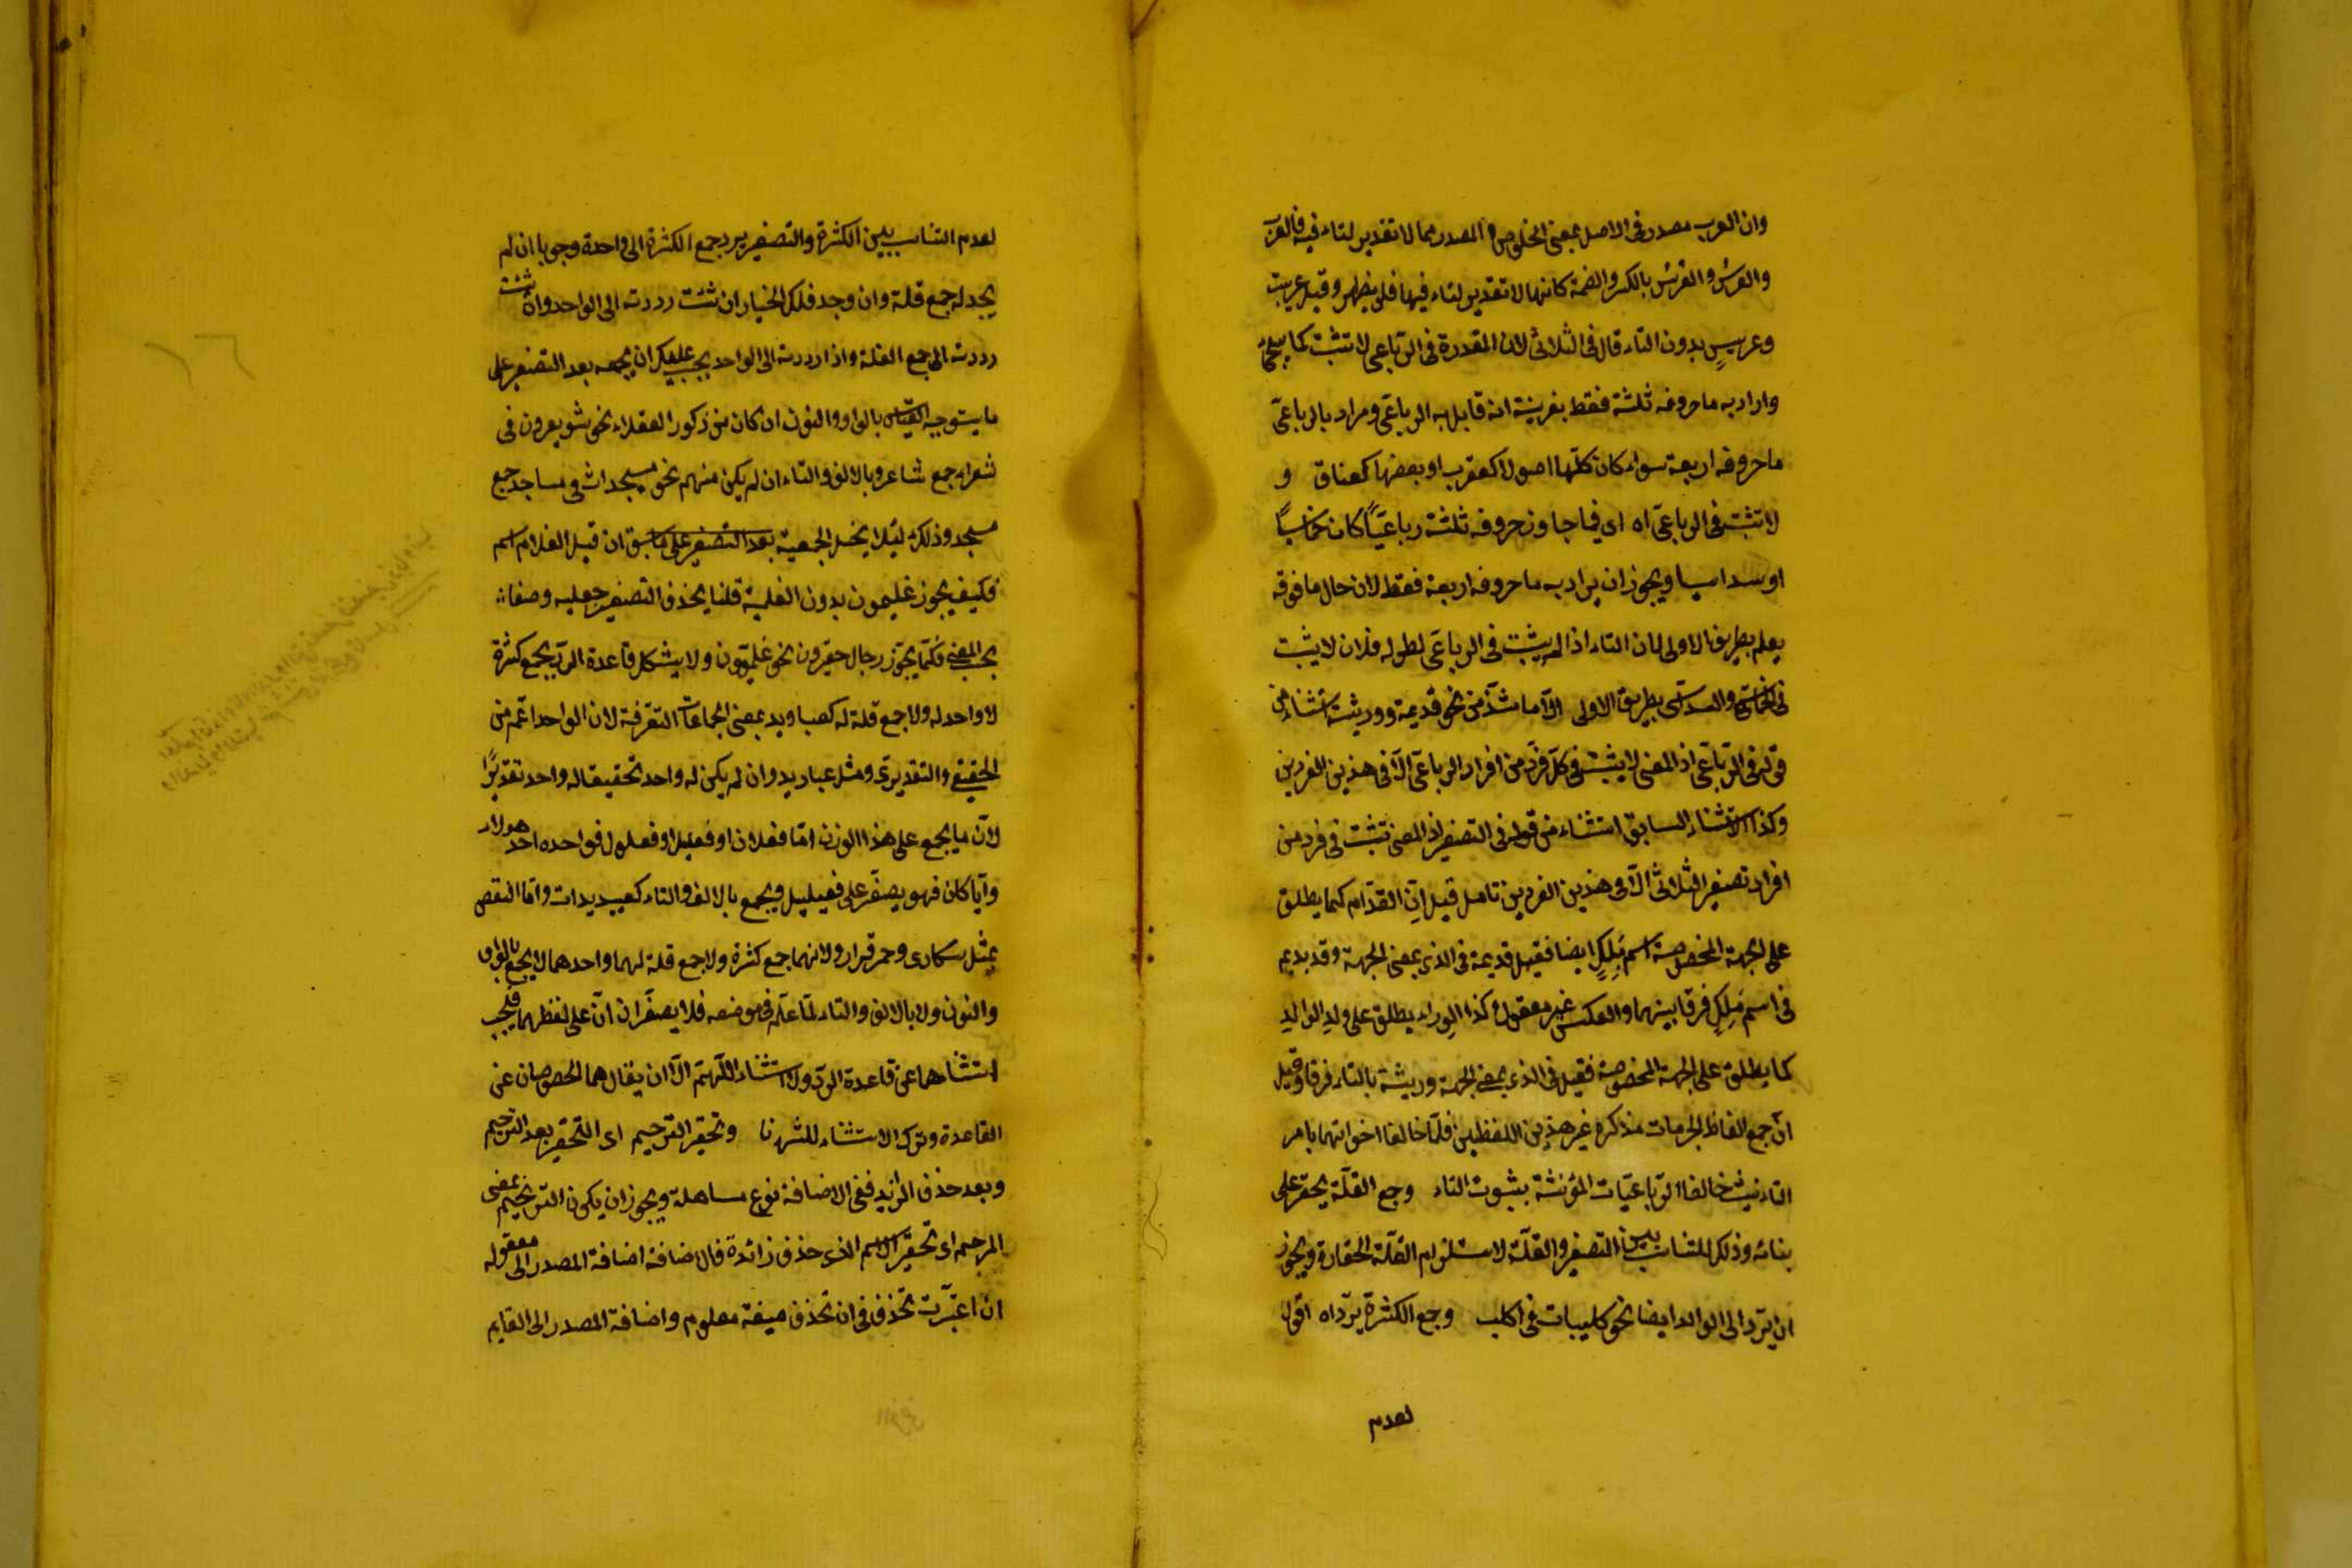 وان العرب مصدر فى الاصل بمعنى الخلوص و المصدر مما لا تقدير لتاء فيه فالعرب
والعرس و الفرس بالكسر والضمة كانها لا تقدير لتاء فيها فلم يظهر وقيل عريب
وعريس بدون التاء قال فى الثلاثى لان المقدرة فى الرباعى لا تثبت كما سيجئ
واراد به ما حروفه ثلثة فقط بقرينة انه قابل به الرباعى ومراد بالرباعى
ما حروفه اربعة سواء كان كلها اصولا كعقرب او بعضها كعناق و
لا تثبت فى الرباعى اه اى فيما جاوز حروفه ثلثة رباعيا كان خماسيا
او سداسيا ويجوز ان يراد به ما حروفه اربعة فقط لان حال ما فوقه
يعلم بطريق الاولى لان التاء اذا لم يثبت فى الرباعى لطوله فلان لا يثبت
فى الخماسى والسداسى بطريق الاولى الا ما شذ من نحو قديمة ووريئة استثناء من
قوله فى الرباعى اذ المعنى لا يثبت فى كل فرد من افراد الرباعى الا فى هذين الفردين
وكذا الاستثناء السابق استثناء من قوله فى التصغير اذ المعنى تثبت فى فرد من
افراد تصغير الثلاثى الا فى هذين الفردين تامل قيل ان القدام كما يطلق
على الجهة المخصوصة اسم ملك ايضا فقيل قديمة فى الذى بمعنى الجهة وقديديم
فى اسم ملك فرقا بينهما والعكس غير معقول وكذا الوراء يطلق على ولد الولد
كما يطلق على الجهة المخصوصة فقيل فى الذى بمعنى الجهة وريئة بالتاء فرقا وقيل
ان جمع الفاظ الجهات مذكرة غير هذين اللفظين فلما خالفا اخواتهما بامر
التانيث خالفا الرباعيات المؤنثة بثبوت التاء وجمع القلة يحقر على
بنائه وذلك للتناسب بين التصغير والقلة لاستلزام القلة الحقارة ويجوز
ان يرد الى الواحد ايضا نحو كليبات فى اكلب وجمع الكثرة يرد اه اقول
لعدم
لعدم التناسب بين الكثرة والتصغير يرد جمع الكثرة الى واحدة وجوبا ان لم
يجد له جمع قلة وان وجد فلك الخيار ان شئت رددته الى الواحد وان شئت
رددته الى جمع القلة واذا رددته الى الواحد يجب عليك ان يجمعه بعد التصغير على
ما يستوجبه القياس بالواو والنون ان كان من ذكور العقلاء نحو شويعرون فى
شعراء جمع شاعر وبالالف والتاء ان لم يكن منهم نحو مسيجدات فى مساجد جمع
مسجد وذلك لئلا يختل الجمعية بعد التصغير على ما سبق ان قيل الغلام اسم
فكيف يجوز غليمون بدون العلمية قلنا يحذف التصغير جعليه وصفا
بحسب المعنى فكما يجوز رجال حقيرون نحو غليمون ولا يشكل قاعدة الرد بجمع كثرة
لا واحد له ولا جمع قلة له كعباديد بمعنى الجماعات المتفرقة لان الواحد اعم من
الحقيقى والتقديرى ومثل عباديد وان لم يكن له واحد تحقيقا له واحد تقديرا
لان ما يجمع على هذا الوزن اما فعلان او فعليل او فعلول فواحده احد هولاء
وايا كان فهو يصغر على فعيليل ويجمع بالالف والتاء كعبيديدات واما النقض
بمثل سكارى وحمر فوارد لانهما جمع كثرة ولا جمع قلة لهما واحدهما لا يجمع بالواو
والنون ولا بالالف والتاء لما علم فى موضعه فلا يصغران ان على لفظهما فيجب
استثناءهما عن قاعدة الرد ولا استثناء اللهم الا ان يقال هما مخصوصان عن
القاعدة وترك الاستثناء للشهرة وتحقير الترخيم اى التحقير بعد الترخيم
وبعد حذف الزائد ففى الاضافة نوع مساهلة ويجوز ان يكون الترخيم بمعنى
المرخم اى تحقير الاسم الذى حذف زائدة فالاضافة اضافة المصدر الى مفعوله
ان اعتبرت تحذف فى ان تحذف صيغة معلوم واضافة المصدر الى القايم